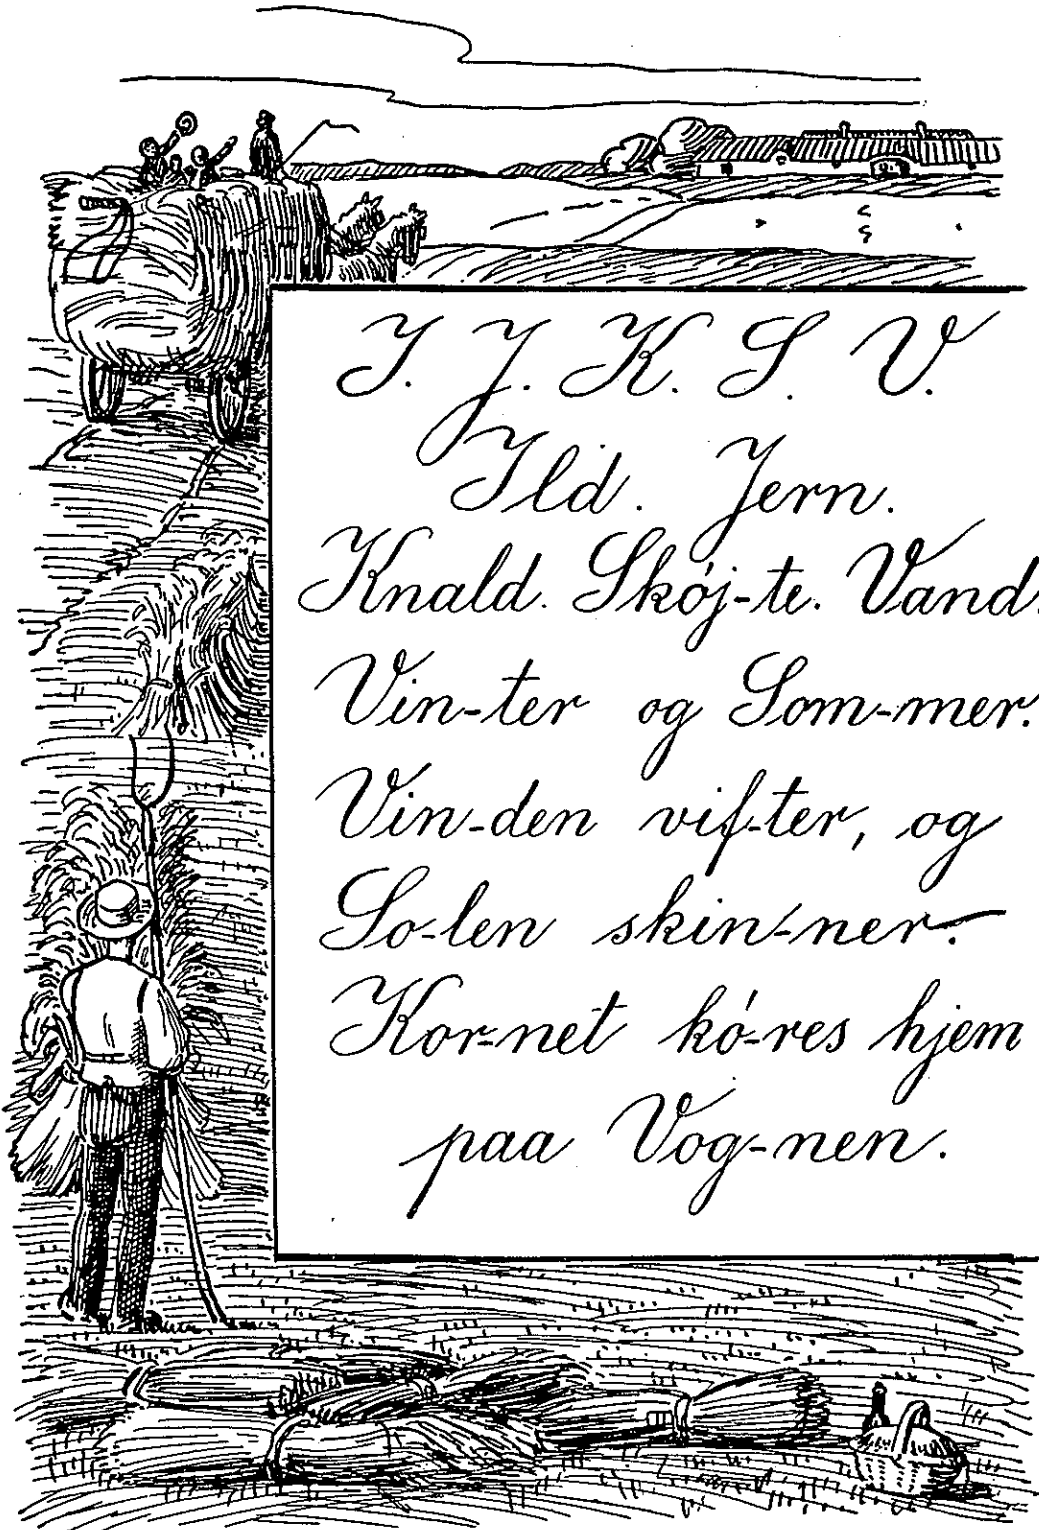 I. J. K. S. V.
Ild. Jern.
Knald. Skøj-te. Vand.
Vin-ter og Som-mer.
Vin-den vif-ter, og
So-len skin-ner.
Kor-net kø-res hjem
paa Vog-nen.